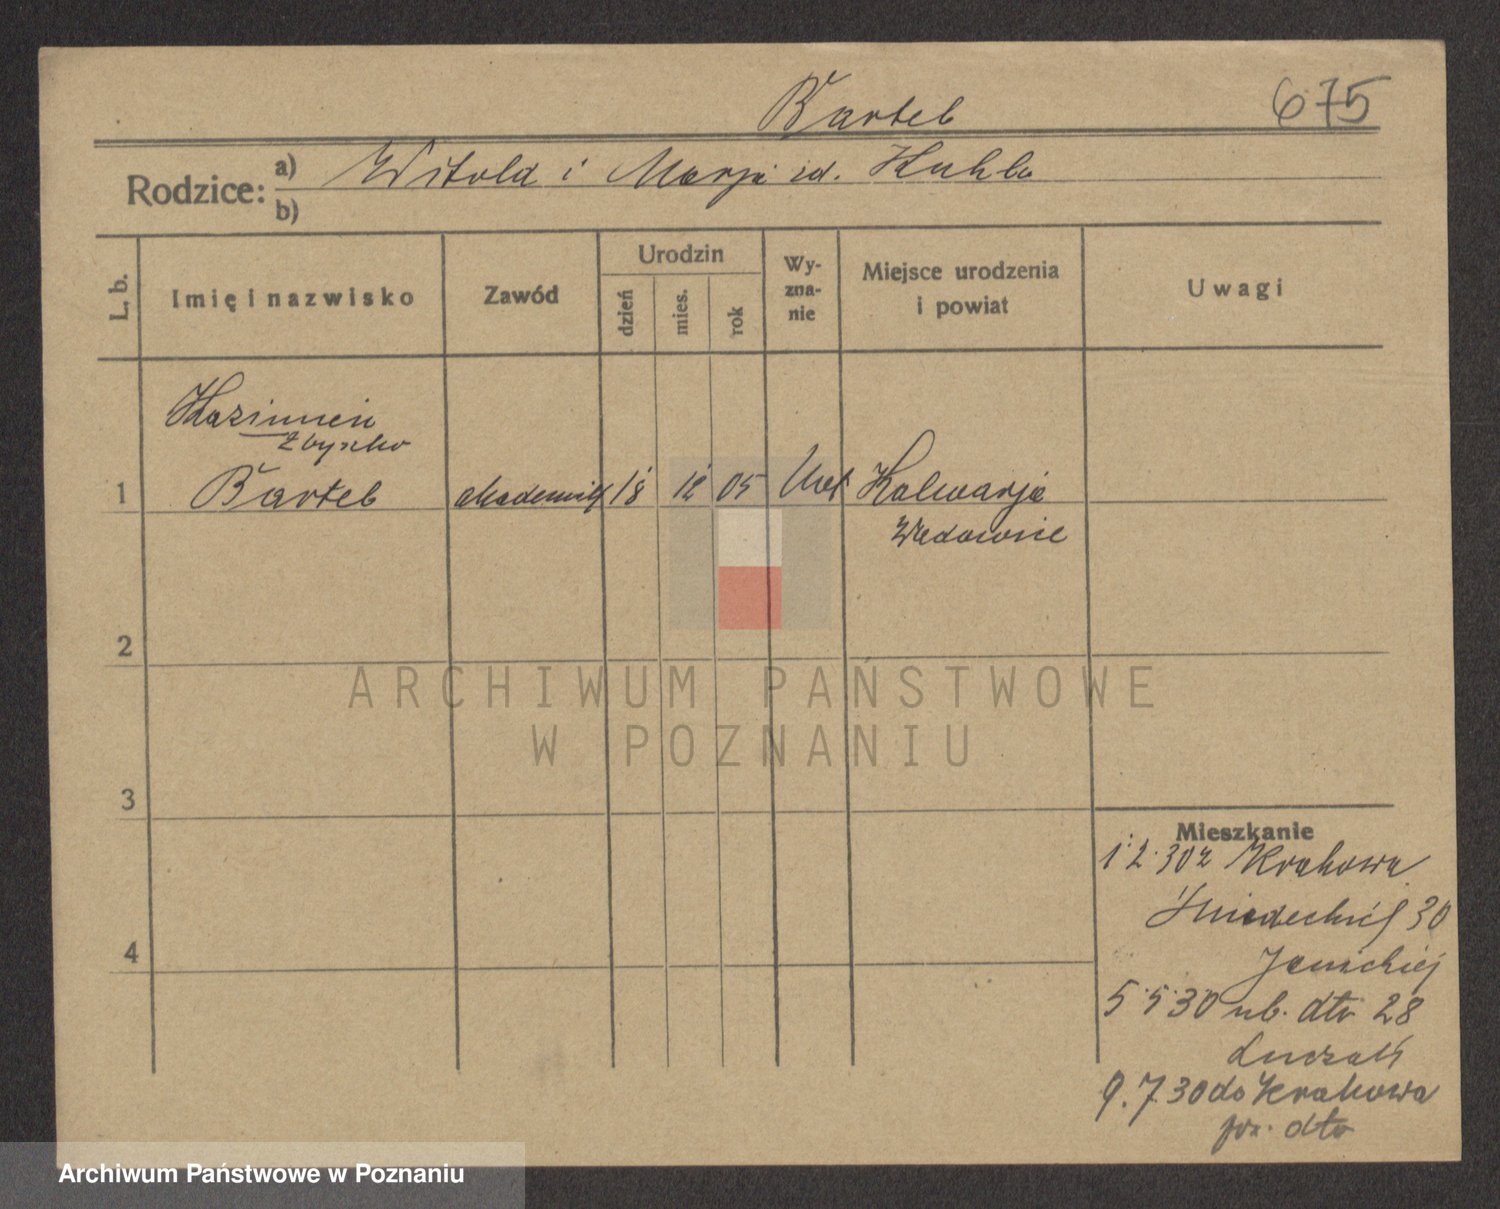 Bartel 675
Rodzice: a) Witold i Marja zd. Kuhla
b)
L. b. Imię i nazwisko Zawód Urodzin dzień mies. rok Wyznanie Miejsce urodzenia i powiat Uwagi
Kazimierz
Zbyszko
1 Bartel akademik 18 12 05 Kalwarja
Wadowice
2
ARCHIWUM PAŃSTWOWE
W POZNANIU
3
Mieszkanie
1.2.30 z Krakowa
Śniadeckich 30
5.5.30 ub. dto 28
4
9.7.30 do Krakowa
dto
Archiwum Państwowe w Poznaniu